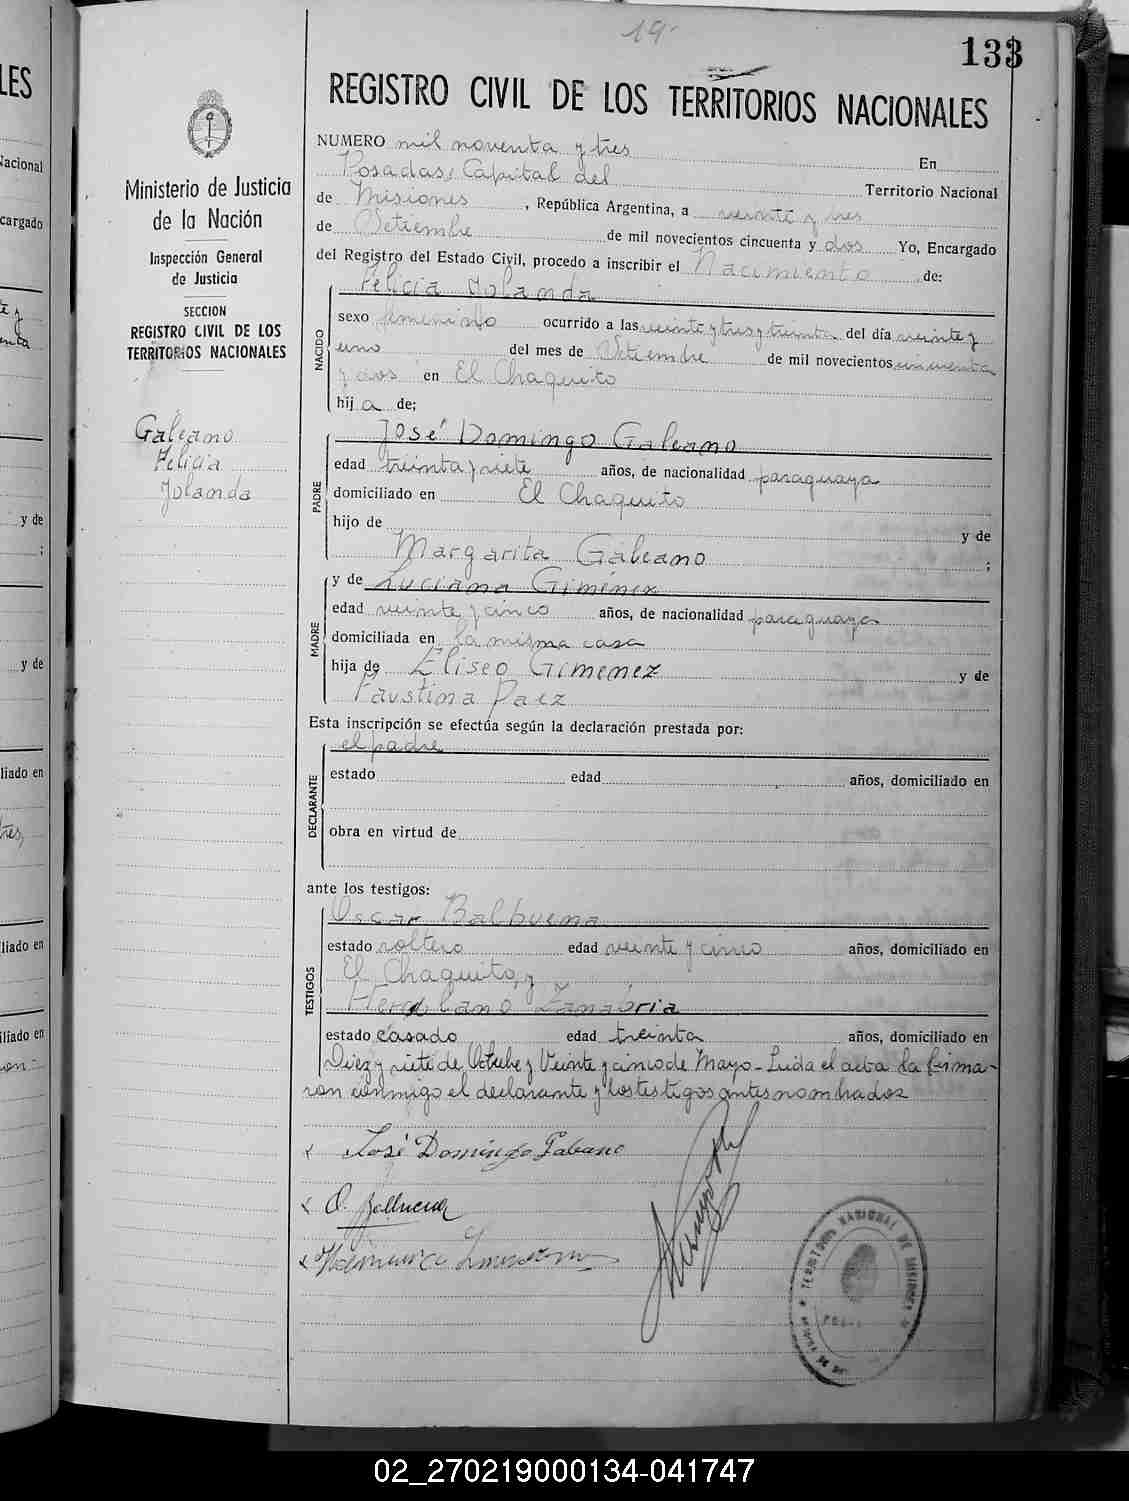 19
133
REGISTRO CIVIL DE LOS TERRITORIOS NACIONALES
Ministerio de Justicia
de la Nación
Inspección General
de Justicia
SECCION
REGISTRO CIVIL DE LOS
TERRITORIOS NACIONALES
Galeano
Felicia
Jolanda
NUMERO mil noventa y tres En
Posadas, Capital del Territorio Nacional
de Misiones, República Argentina, a veinte y tres
de Setiembre de mil novecientos cincuenta y dos Yo, Encargado
del Registro del Estado Civil, procedo a inscribir el Nacimiento de:
Felicia Jolanda
NACIDO
sexo femenino ocurrido a las veinte y tres y treinta del día veinte y
uno del mes de Setiembre de mil novecientos cincuenta
y dos en El Chaquito
hija de;
José Domingo Galeano
PADRE
edad treinta y siete años, de nacionalidad paraguaya
domiciliado en El Chaquito
hijo de y de
Margarita Galeano ;
y de Luciana Giménez
MADRE
edad veinte y cinco años, de nacionalidad paraguaya
domiciliada en la misma casa
hija de Eliseo Gimenez y de
Faustina Paez
Esta inscripción se efectúa según la declaración prestada por:
el padre
DECLARANTE
estado edad años, domiciliado en
obra en virtud de
ante los testigos:
Oscar Balbuena
TESTIGOS
estado soltero edad veinte y cinco años, domiciliado en
El Chaquito, y
Zanabria
estado casado edad treinta años, domiciliado en
Diez y siete de Octubre y Veinte y cinco de Mayo - Leida el acta la firma-
ron conmigo el declarante y los testigos antes nombrados
José Domingo Galeano
O. Balbuena
TERRITORIO NACIONAL DE MISIONES
02_270219000134-041747